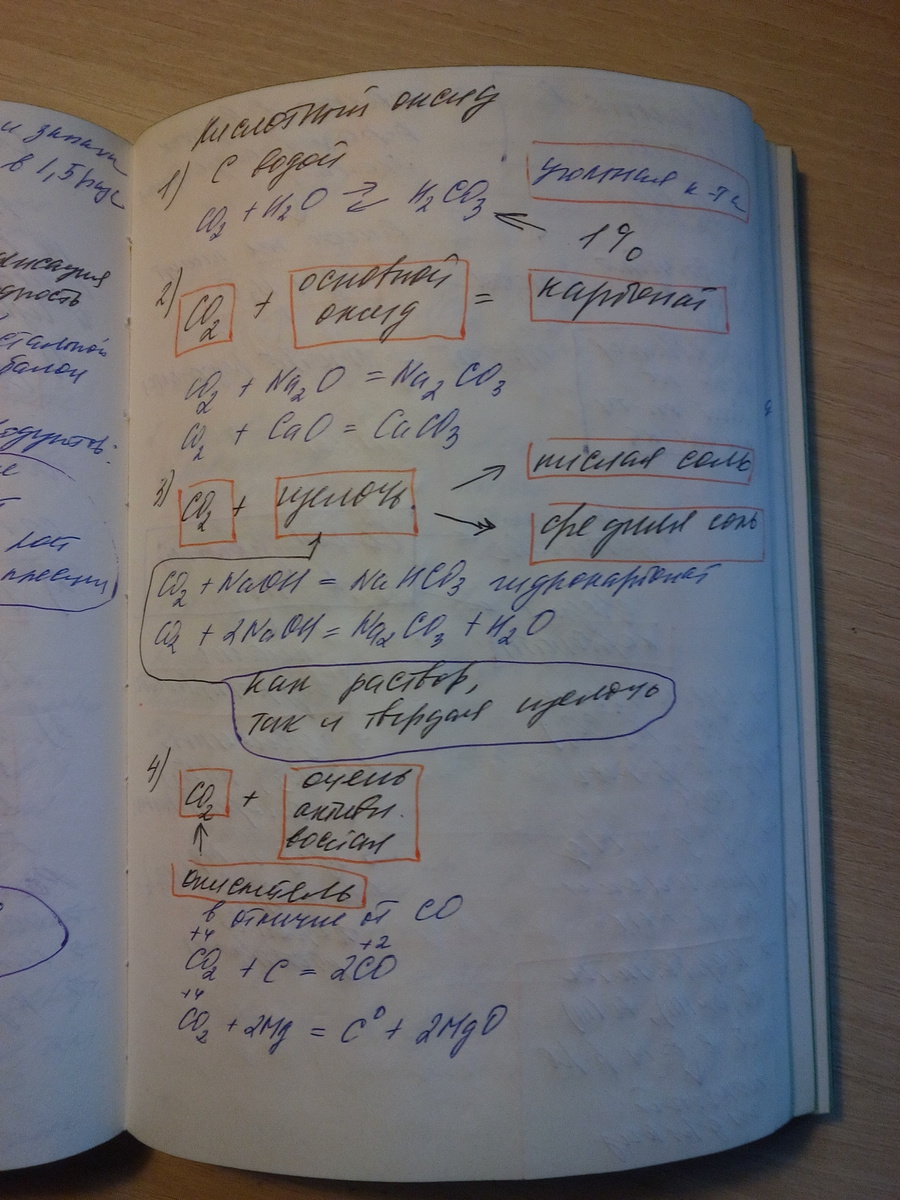 и запаха
в 1,5 раза
дкость
стальной
балон
Кислотный оксид
1) С водой
CO₂ + H₂O ⇄ H₂CO₃
угольная к-та
1%
2) CO₂ + основной оксид = карбонат
CO₂ + Na₂O = Na₂CO₃
CO₂ + CaO = CaCO₃
3) CO₂ + щелочь
кислая соль
средняя соль
CO₂ + NaOH = NaHCO₃ гидрокарбонат
CO₂ + 2NaOH = Na₂CO₃ + H₂O
как раствор,
так и твердая щелочь
4) CO₂ +
очень
активн.
восстан
окислитель
в отличие от CO
+4 +2
CO₂ + C = 2CO
+4
CO₂ + 2Mg = C⁰ + 2MgO